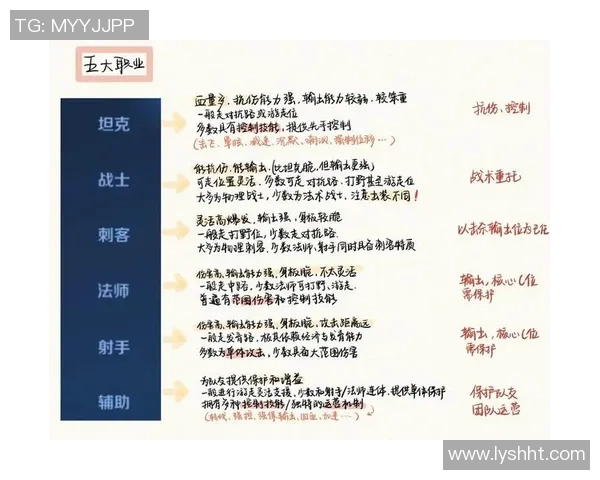 TG: MYYJJPP
五大职业
坦克
血量多、抗伤能力强，输出能力较弱、较笨重
一般走对抗路或游走位
多数具有控制技能，提供先手控制
(击飞、晕眩、减速、沉默、嘲讽、强制位移…)
抗伤、控制
战士
能抗伤、能输出、(比坦克脆，但输出更强)
可走位置灵活、多数可走对抗路、打野甚至游走位
大多为物理战士，少数为法术战士，注意出装不同！
战术重托
刺客
灵活高爆发，输出强，身板较脆
一般走打野位，少数走对抗路
大多为物理刺客，少数法师、射手同时具备刺客特质
以击杀输出位为己任
法师
伤害高，输出能力强，身板脆，不太灵活
一般走中路，少数法师可打野、游走
普遍有范围伤害和控制技能
输出，核心C位
需保护
射手
伤害高，输出能力强，身板脆，攻击距离远
一般走发育路，极具依赖经济与发育能力
多数为单体攻击，少数具备大范围伤害
输出，核心C位
需保护
辅助
为队友提供保护和增益
一般进行游走灵活支援，少数和射手/法师连体，提供单体保护
拥有多种控制技能/独特的运营机制
强控、强保输出、回血、加速…)
保护队友
团队运营
www.lyshht.com